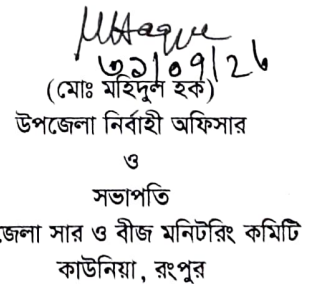 MHaque
৩১/০৭/২৬
(মোঃ মহিদুল হক)
উপজেলা নির্বাহী অফিসার
ও
সভাপতি
জেলা সার ও বীজ মনিটরিং কমিটি
কাউনিয়া, রংপুর